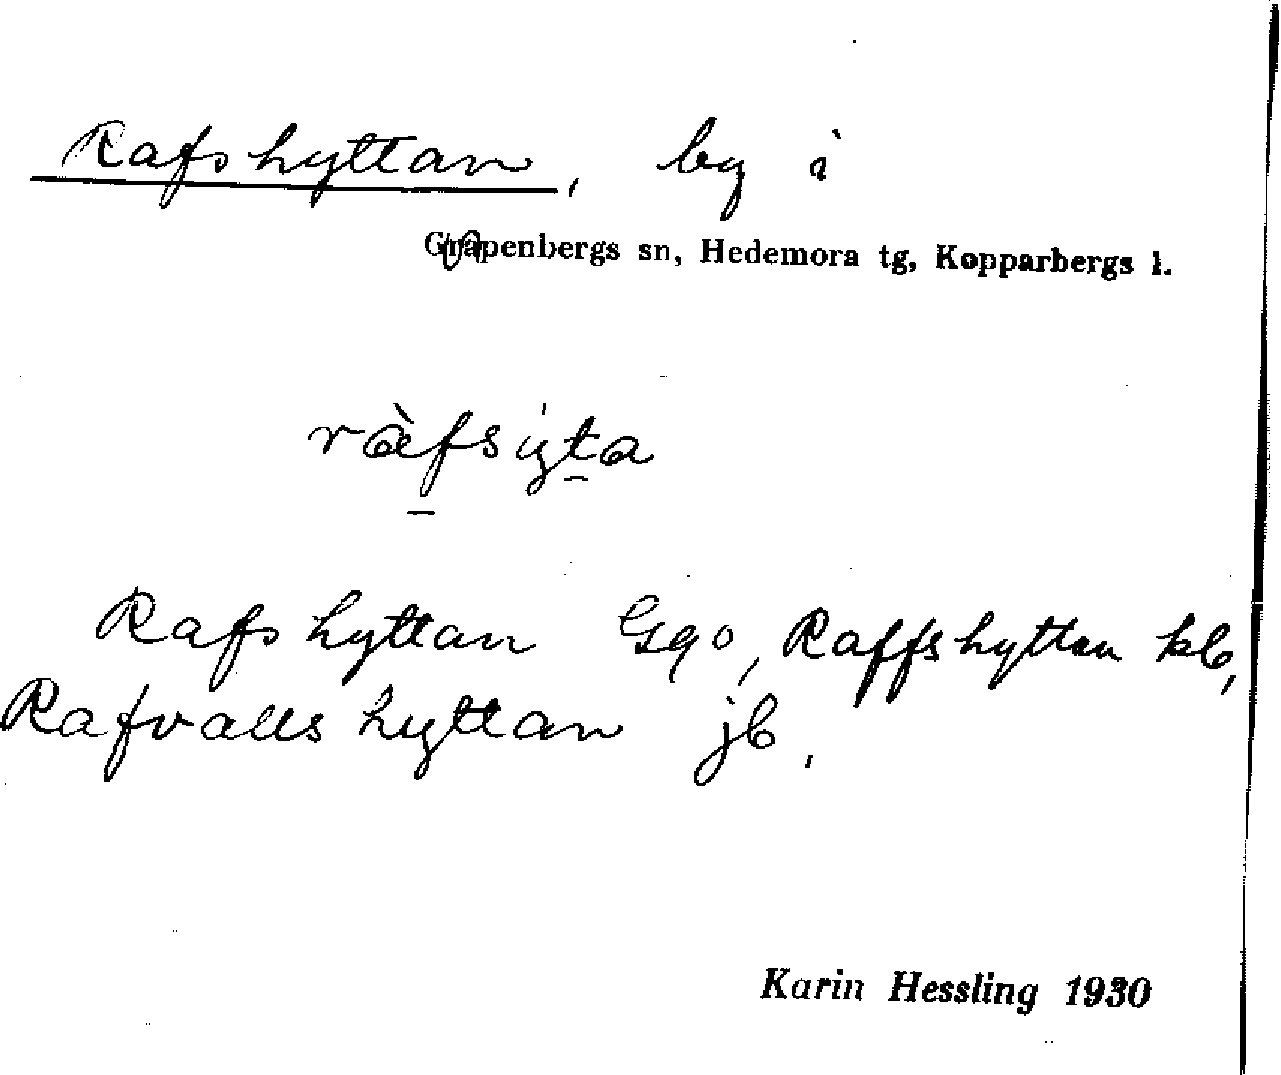 Rafshyttan, by i
Grapenbergs sn, Hedemora tg, Kopparbergs l.
ràfsyta
Rafshyttan Gqo, Raffshyttan kb,
Rafvallshyttan jb.
Karin Hessling 1930